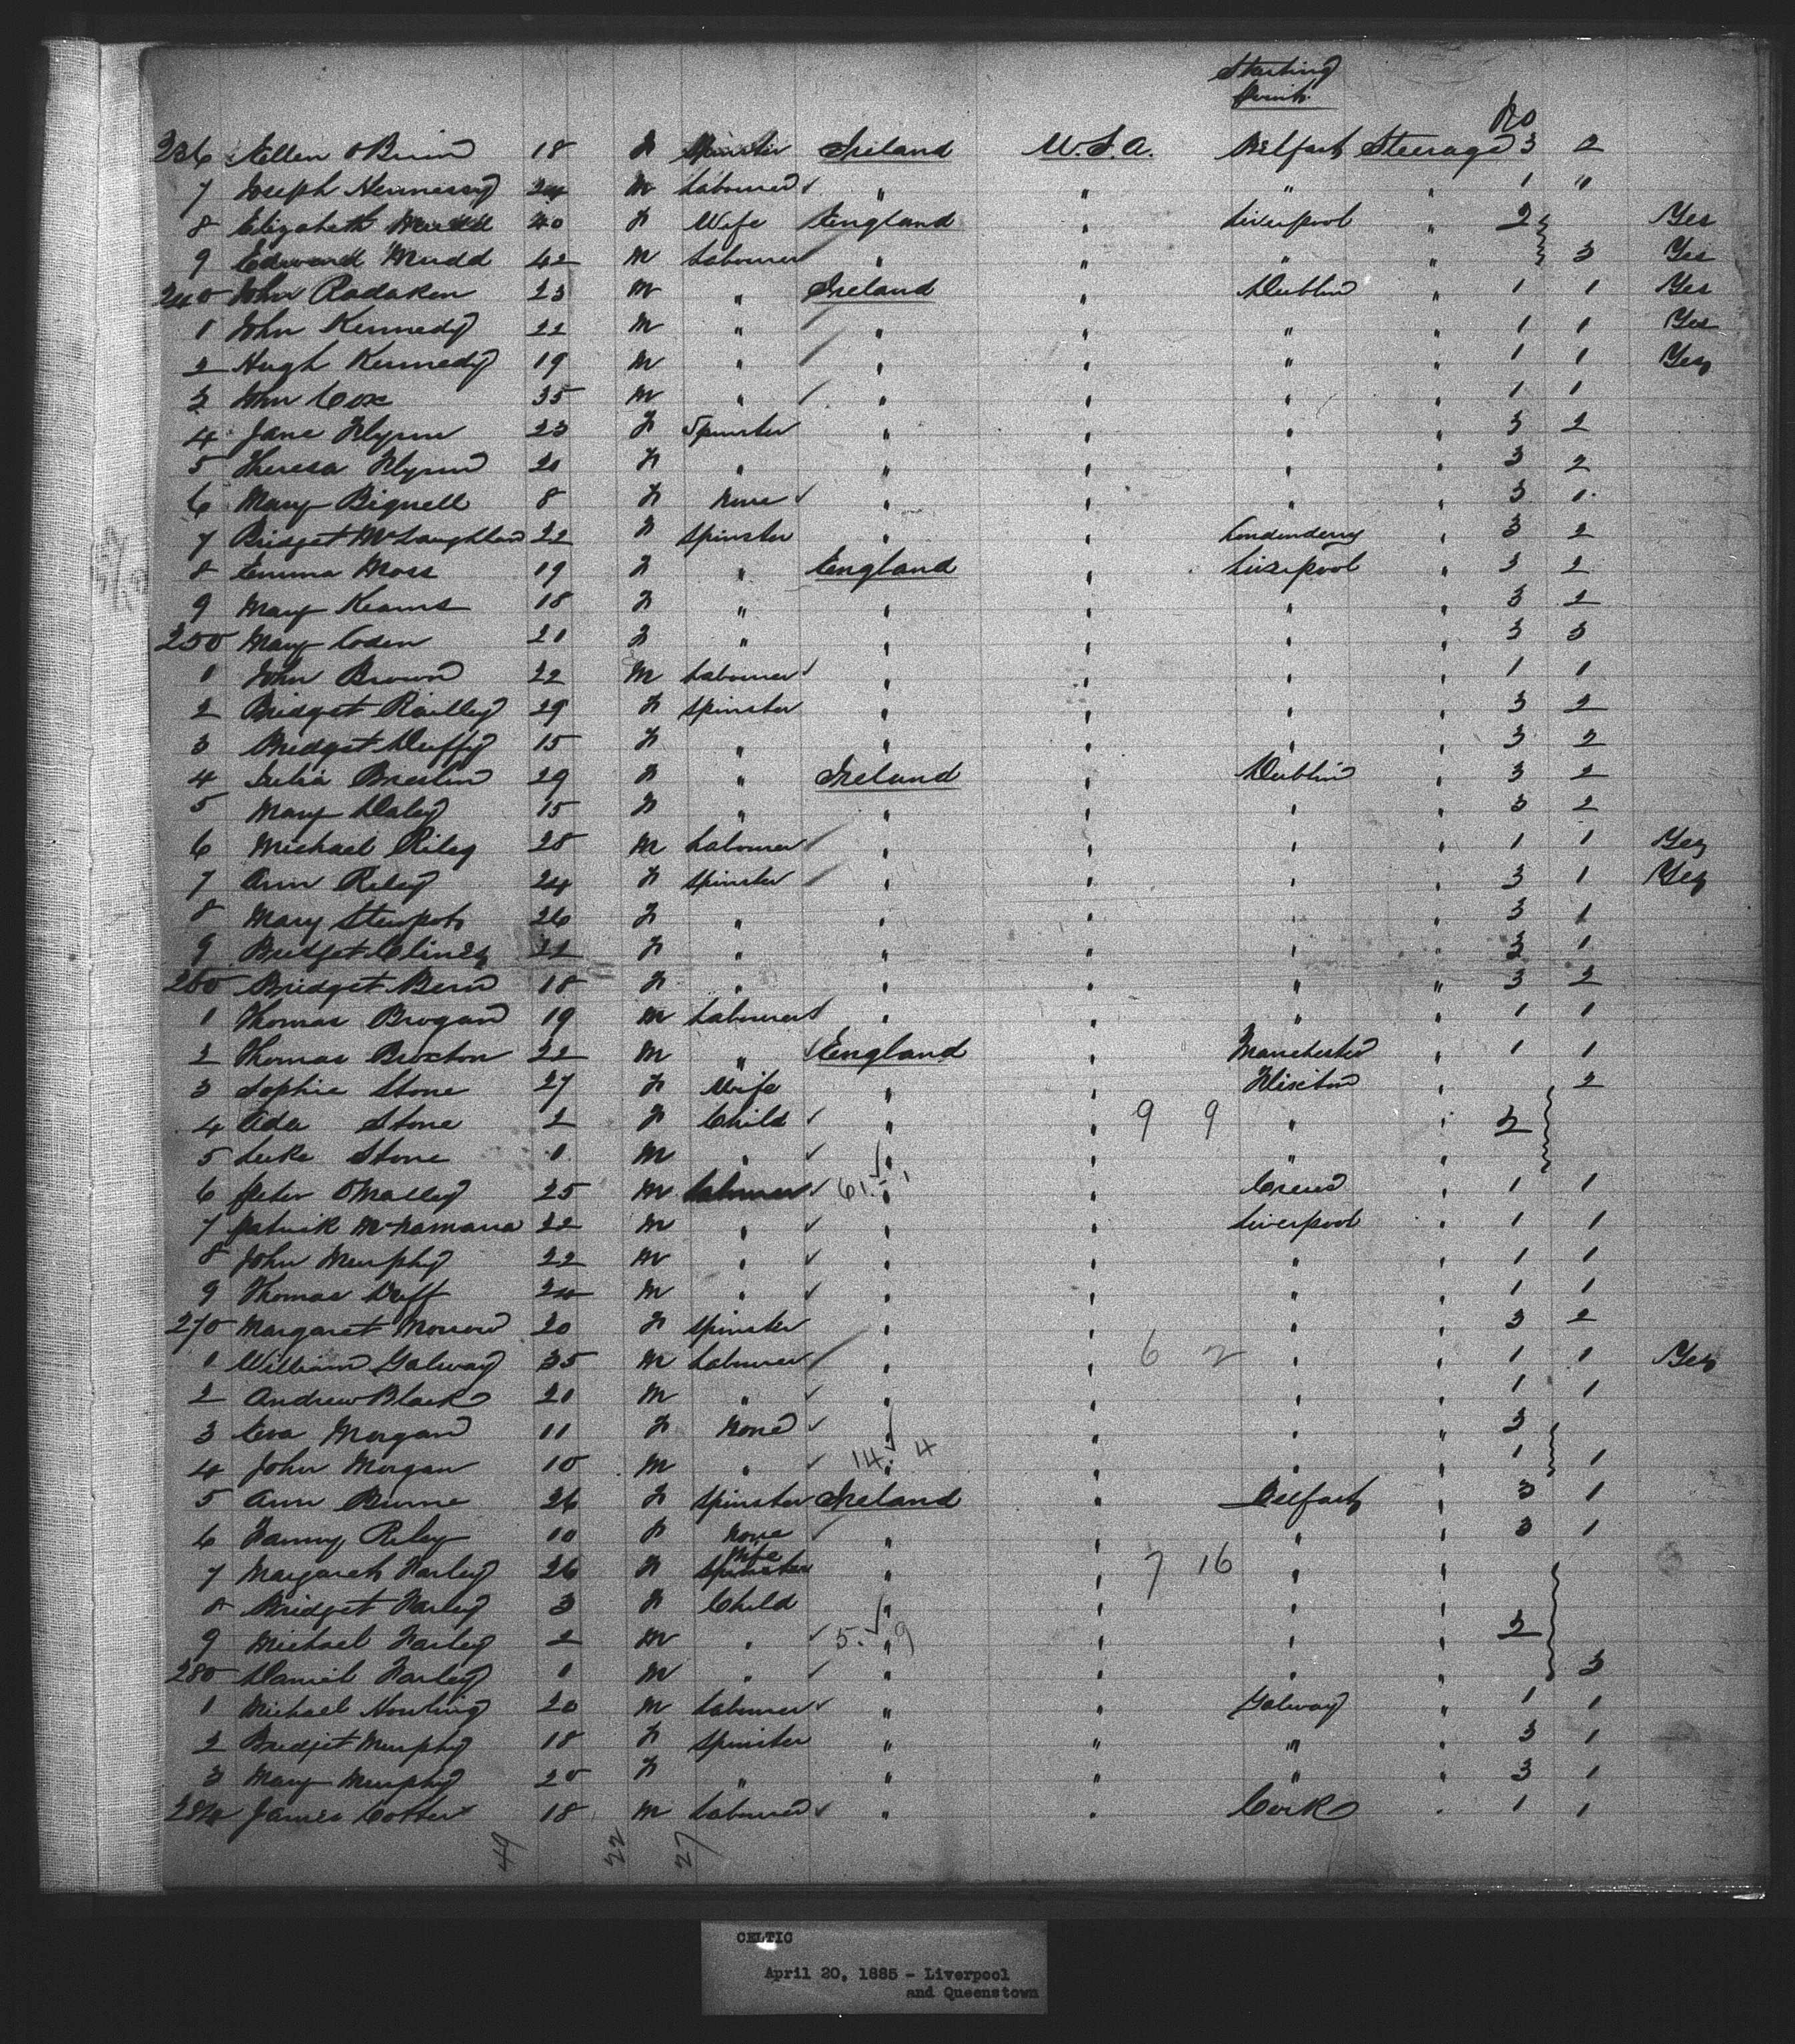 Starting
Point
No
236 Ellen O'Brien 18 F Spinster Ireland U.S.A. Belfast Steerage 3 2
7 Joseph Hennessy 24 M Labourer " " " " 1 "
8 Elizabeth Mudd 40 F Wife England " Liverpool " 2 Yes
9 Edward Mudd 42 M Labourer " " " " 3 Yes
240 John Radaken 23 M " Ireland " Dublin " 1 1 Yes
1 John Kennedy 22 M " " " " " 1 1 Yes
2 Hugh Kennedy 19 M " " " " " 1 1 Yes
3 John Cox 35 M " " " " " 1 1
4 Jane Flynn 23 F Spinster " " " " 3 2
5 Theresa Flynn 20 F " " " " " 3 2
6 Mary Bignell 8 F None " " " " 3 1
7 Bridget McLaughlan 22 F Spinster " " Londonderry " 3 2
8 Emma Moss 19 F " England " Liverpool " 3 2
9 Mary Kearns 18 F " " " " " 3 2
250 Mary Coden 21 F " " " " " 3 3
1 John Brown 22 M Labourer " " " " 1 1
2 Bridget Railley 29 F Spinster " " " " 3 2
3 Bridget Duffy 15 F " " " " " 3 2
4 Julia Breslin 29 F " Ireland " Dublin " 3 2
5 Mary Daley 15 F " " " " " 3 2
6 Michael Riley 28 M Labourer " " " " 1 1 Yes
7 Ann Riley 24 F Spinster " " " " 3 1 Yes
8 Mary 26 F " " " " " 3 1
9 Bridget 22 F " " " " " 3 1
260 Bridget Bern 18 F " " " " " 3 2
1 Thomas Brogan 19 M Labourer " " " " 1 1
2 Thomas Broxton 22 M " England " Manchester " 1 1
3 Sophie Stone 27 F Wife " " Flixton " 2
4 Ada Stone 2 F Child " " 9 9 " " 2
5 Luke Stone 1 M " " " " "
6 Peter O'Malley 25 M Labourer 61 - 1 " " Crewe " 1 1
7 Patrick McNamara 22 M " " " Liverpool " 1 1
8 John Murphy 22 M " " " " " 1 1
9 Thomas Duff 24 M " " " " " 1 1
270 Margaret Morrow 20 F Spinster " " " " 3 2
1 William Galway 35 M Labourer " " 6 2 " " 1 1 Yes
2 Andrew Black 21 M " " " " " 1 1
3 Eva Morgan 11 F None " " " " 3
4 John Morgan 10 M " 14 4 " " " " 1 1
5 Ann Burne 26 F Spinster Ireland " Belfast " 3 1
6 Fanny Riley 10 F None " " " " 3 1
7 Margaret Farley 26 F Spinster Wife " " 7 16 " "
8 Bridget Farley 3 F Child " " " "
9 Michael Farley 2 M " 5 9 " " " " 2
280 Daniel Farley 1 M " " " " " 3
1 Michael Howling 20 M Labourer " " Galway " 1 1
2 Bridget Murphy 18 F Spinster " " " " 3 1
3 Mary Murphy 20 F " " " " " 3 1
284 James Cotter 18 M Labourer " " Cork " 1 1
49 22 27
CELTIC
April 20, 1885 - Liverpool
and Queenstown